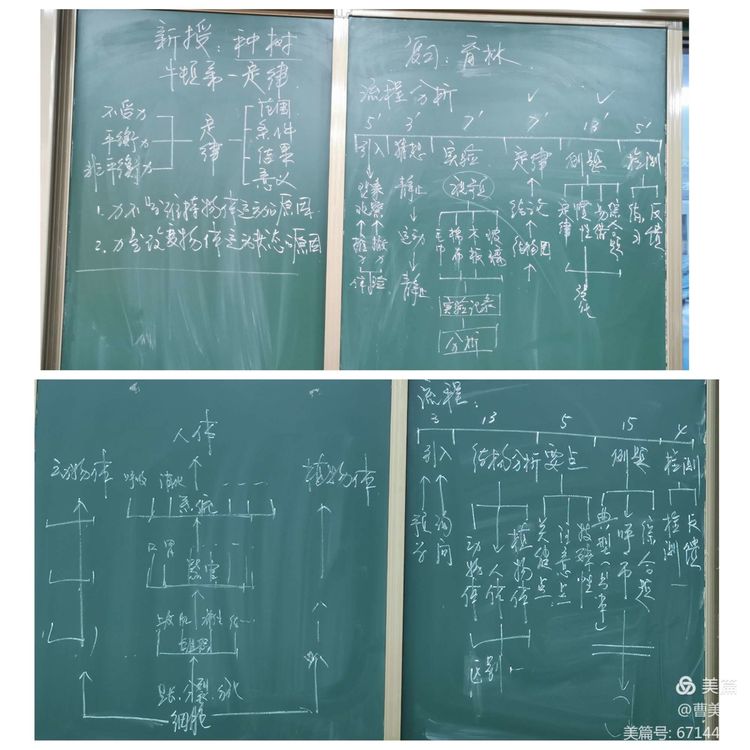 新授：种树
牛顿第一定律
不受力
平衡力
非平衡力
定律
范围
条件
结果
意义
1. 力不是维持物体运动的原因
2. 力是改变物体运动状态的原因
复习：育林
流程分析
5' 3' 7' 7' 13' 5'
引入 猜想 实验 定律 例题 检测
静止
运动
静止
毛巾
棉布
木板
玻璃
实验记录
分析
结论
定律
惯性
综合题
强化
练习
反馈
体验
人体
动物体
植物体
呼吸 消化
系统
口 胃
器官
组织
生长、分裂、分化
细胞
流程：
3 13 5 15 4
引入 结构分析 要点 例题 检测
预学
询问
动物体
人体
植物体
关键点
注意点
区别
典型
呼市
综合题
检测
反馈
美篇
@曹美
美篇号: 67144